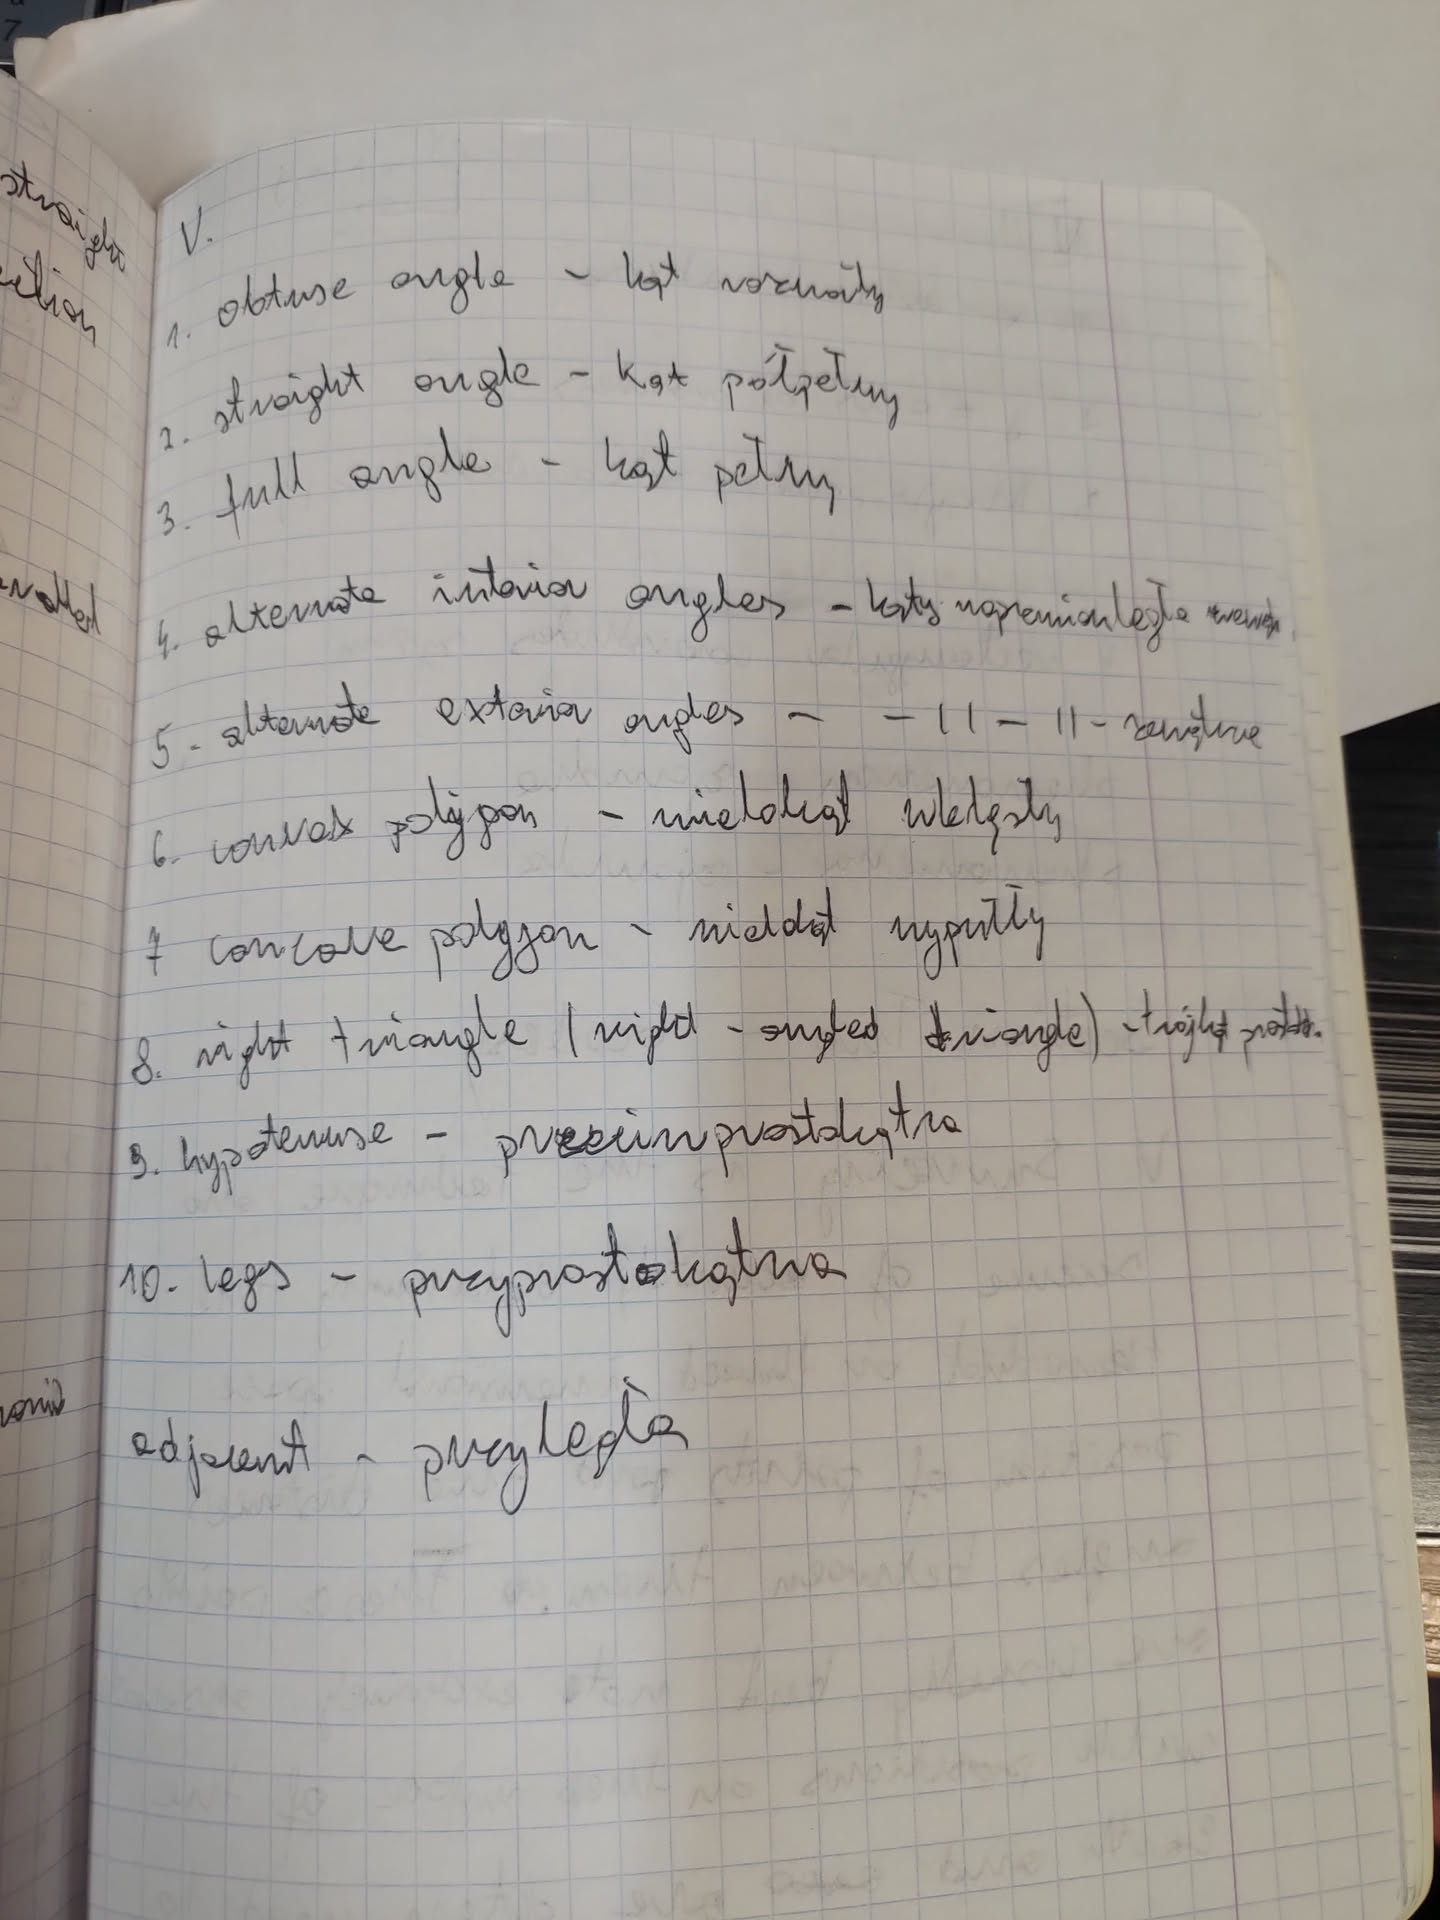 straight
V.
1. obtuse angle - kąt rozwarty
2. straight angle - kąt półpełny
3. full angle - kąt pełny
4. alternate interior angles - kąty naprzemianległe wewn.
5. alternate exterior angles - -11-11- zewnętrzne
6. convex polygon - wielokąt wklęsły
7 concave polygon - wielokąt wypukły
8. right triangle (right-angled triangle) - trójkąt prostok.
9. hypotenuse - przeciwprostokątna
10. legs - przyprostokątna
adjacent - przyległa